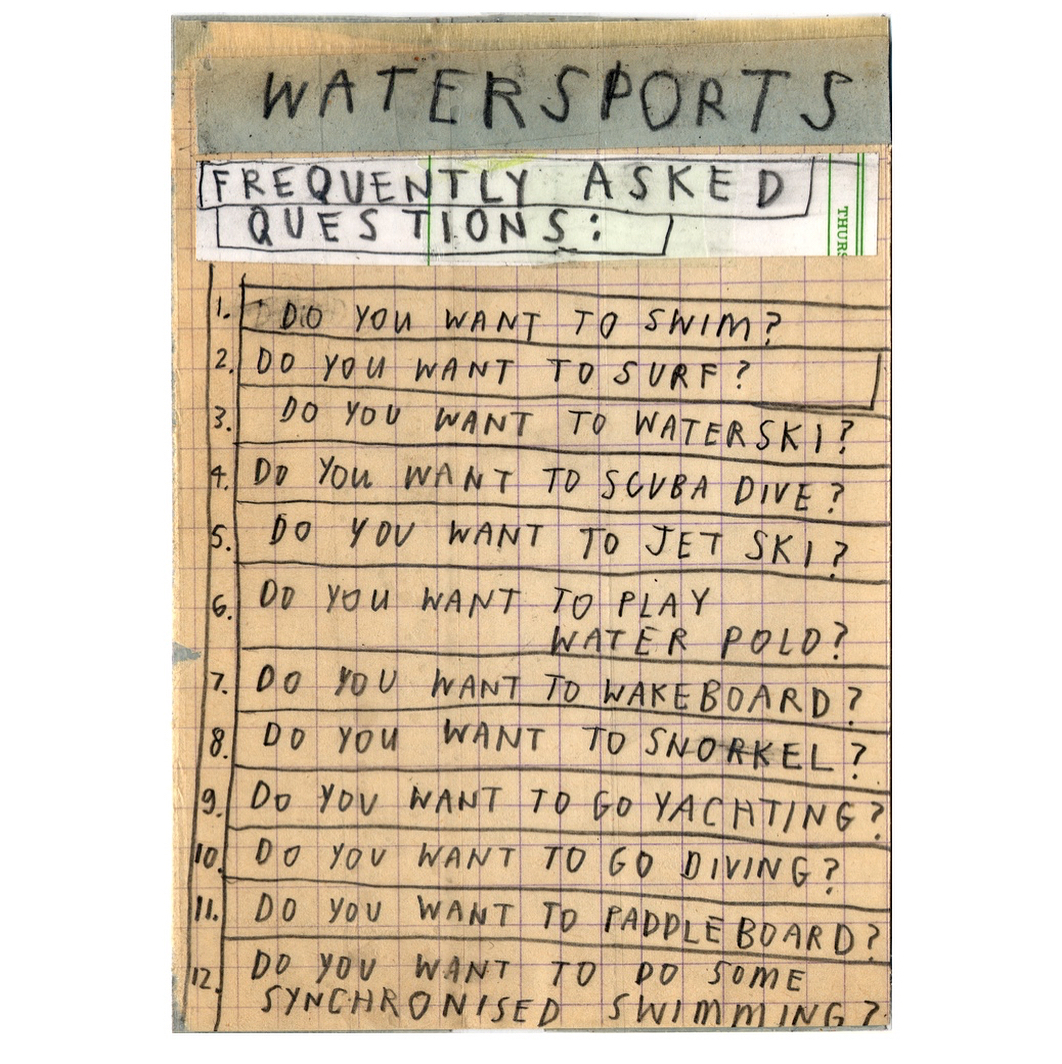 WATERSPORTS
FREQUENTLY ASKED
QUESTIONS:
THURS
1. DO YOU WANT TO SWIM?
2. DO YOU WANT TO SURF?
3. DO YOU WANT TO WATERSKI?
4. DO YOU WANT TO SCUBA DIVE?
5. DO YOU WANT TO JET SKI?
6. DO YOU WANT TO PLAY
WATER POLO?
7. DO YOU WANT TO WAKEBOARD?
8. DO YOU WANT TO SNORKEL?
9. DO YOU WANT TO GO YACHTING?
10. DO YOU WANT TO GO DIVING?
11. DO YOU WANT TO PADDLE BOARD?
12. DO YOU WANT TO DO SOME
SYNCHRONISED SWIMMING?